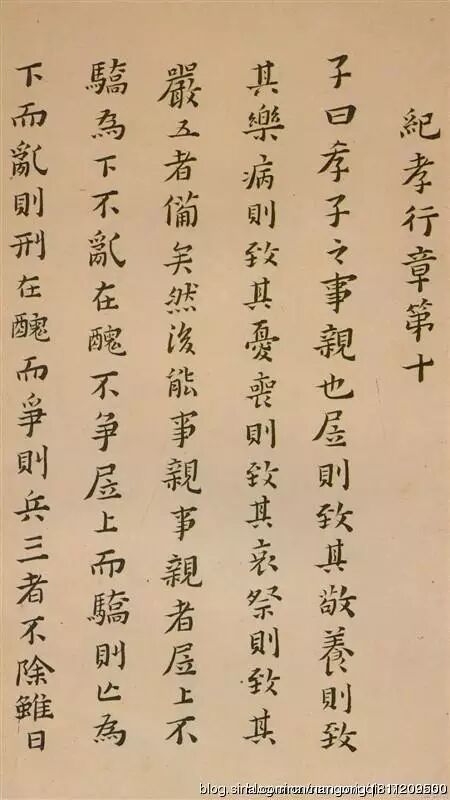 紀孝行章第十
子曰孝子之事親也居則致其敬養則致
其樂病則致其憂喪則致其哀祭則致其
嚴五者備矣然後能事親事親者居上不
驕為下不亂在醜不爭居上而驕則亡為
下而亂則刑在醜而爭則兵三者不除雖日